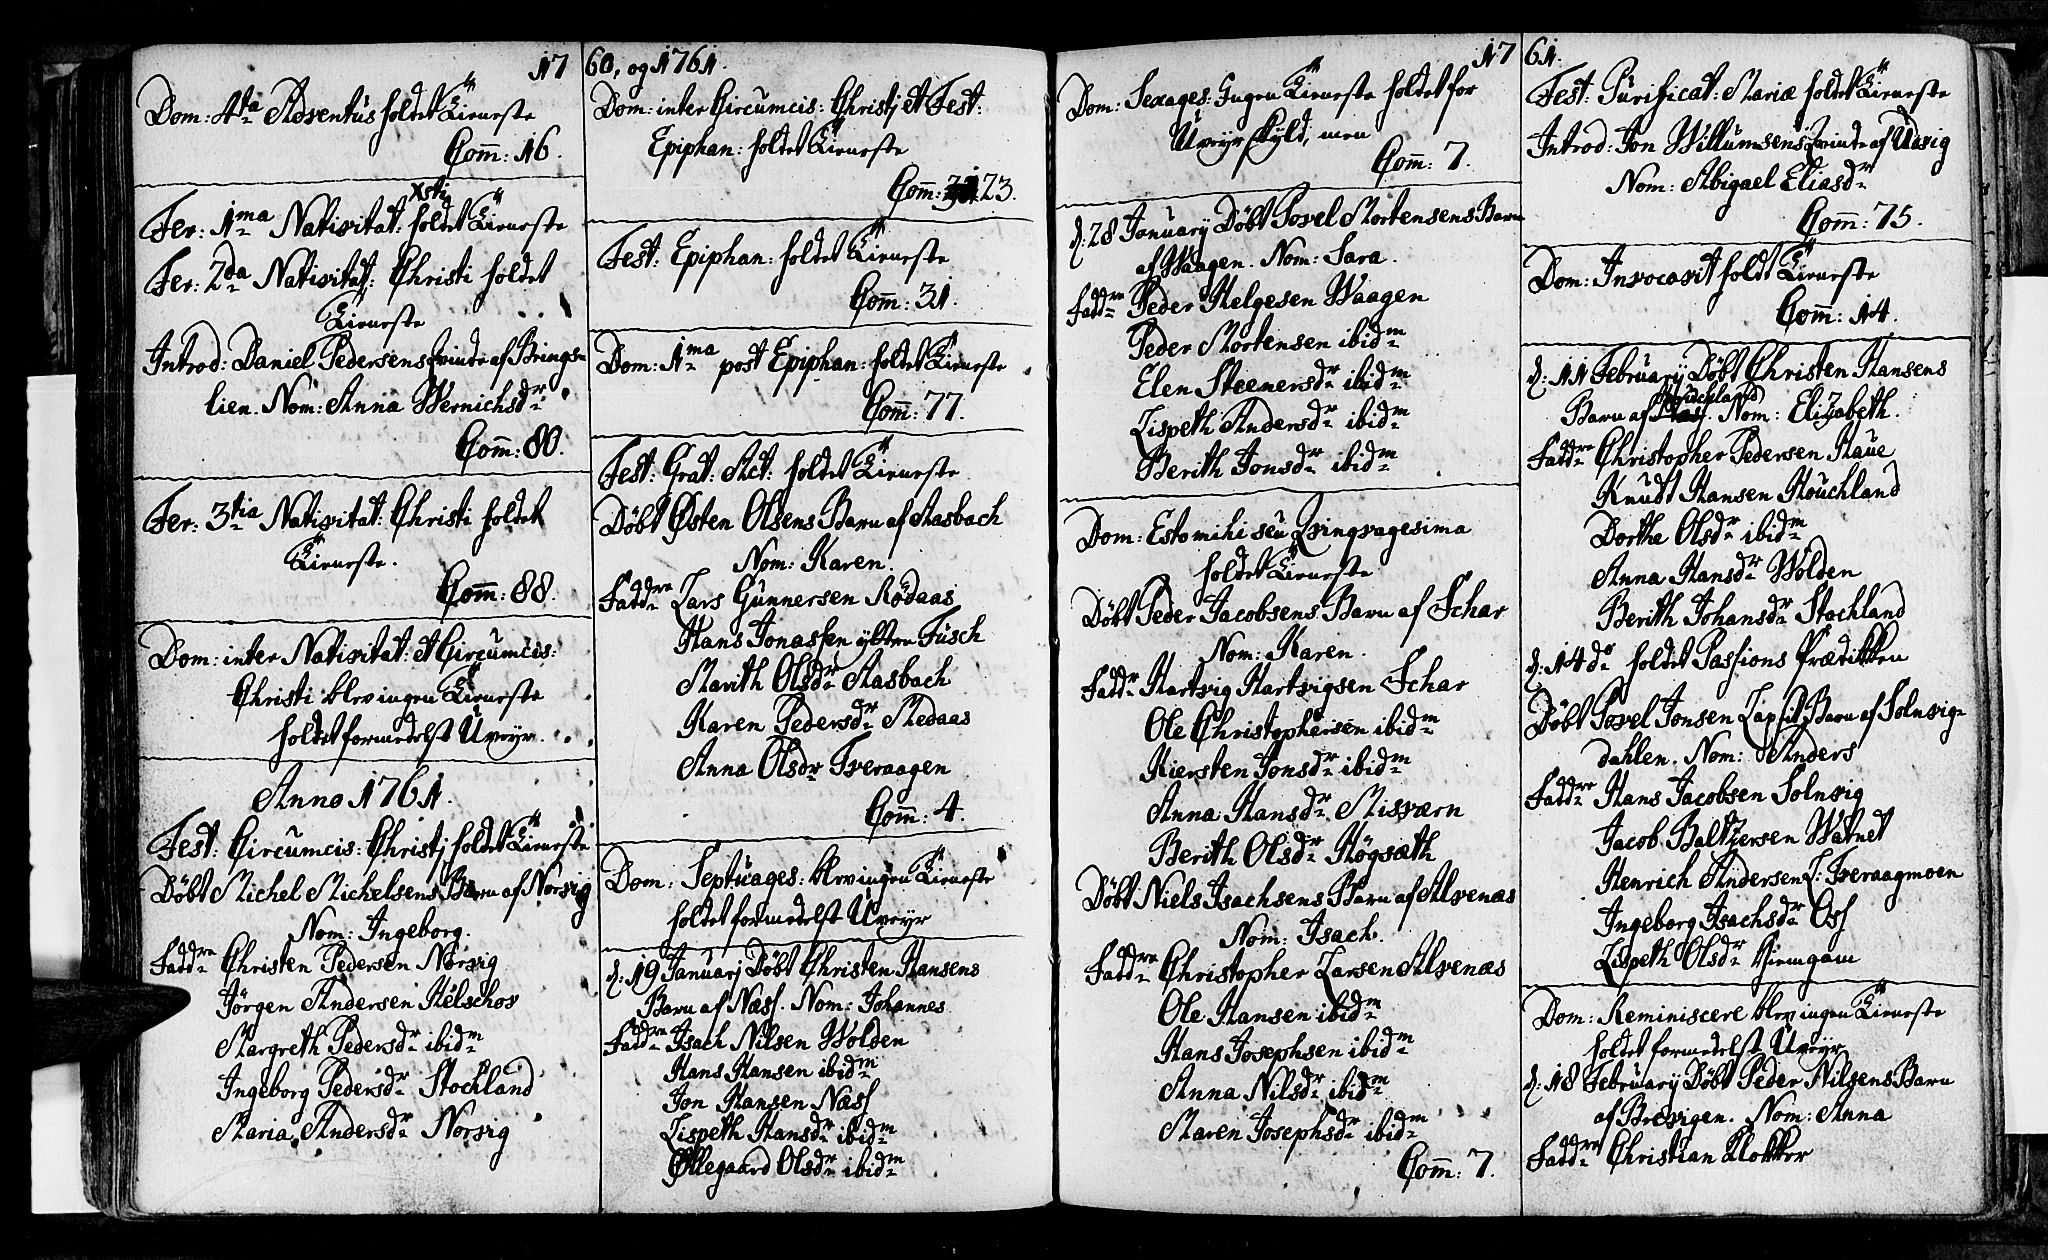 1760, og 1761.
Dom: 4ta Adventus holdet Tieneste
Comm: 16.
Fer: 1ma Nativitat: Xsti holdet Tieneste
Fer: 2da Nativitat: Christi holdet
Tieneste
Introd: Daniel Pedersens Qvinde af Brings-
lien. Nom: Anna Wernichsdr
Comm: 80.
Fer: 3tia Nativitat: Christi holdet
Tieneste.
Comm: 88.
Dom: inter Nativitat: et Circumcis:
Christi blev ingen Tieneste
holdet formedelst Uveyr.
Anno 1761.
Fest: Circumcis: Christj holdet Tieneste
Döbt Michel Michelsens Barn af Norvig
Nom: Ingeborg.
Faddre Christen Pedersen Norvig
Jörgen Andersen Helschov
Margreth Pedersdr ibidm
Ingeborg Pedersdr Stochland
Maria Andersdr Norvig
Dom: inter Circumcis: Christj et Fest:
Epiphan: holdet Tieneste
Comm: 23.
Fest: Epiphan: holdet Tieneste
Comm: 31.
Dom: 1ma post Epiphan: holdet Tieneste
Comm: 77.
Fest: Grat: Act: holdet Tieneste
Döbt Østen Olsens Barn af Aasbach
Nom: Karen.
Faddre Lars Gunnersen Rödaas
Hans Jonassen yngre Fusch
Marith Olsdr Aasbach
Karen Pedersdr Medaas
Anna Olsdr Tveraagen
Comm: 4.
Dom: Septuages: blev ingen Tieneste
holdet formedelst Uveyr
d: 19 Januarj Döbt Christen Hansens
Barn af Næss. Nom: Johannes
Faddre Isach Nilsen Wolden
Hans Hansen ibidm
Jon Hansen Næss
Lispeth Hansdr ibidm
Øllegaard Olsdr ibidm
1761.
Dom: Sexages: Ingen Tieneste holdet for
Uveyr skyld, men
Comm: 7.
d: 28 January Döbt Povel Mortensens Barn
af Waagen. Nom: Sara.
Faddre Peder Helgesen Waagen
Peder Mortensen ibidm
Elen Steenersdr ibidm
Lispeth Andersdr ibidm
Berith Jonsdr ibidm
Dom: Estomihi seu Qvinqvagesima
holdet Tieneste
Döbt Peder Jacobsens Barn af Schar
Nom: Karen.
Faddr Hartvig Hartvigsen Schar
Ole Christophersen ibidm
Kiersten Jonsdr ibidm
Anna Hansdr Misværn
Berith Olsdr Högsæth
Döbt Niels Isachsens Barn af Alvenæs
Nom: Isach.
Faddre Christopher Larsen Alvenæs
Ole Hansen ibidm
Hans Josephsen ibidm
Anna Nilsdr ibidm
Maren Josephsdr ibidm
Comm: 7.
Fest: Purificat: Mariæ holdet Tieneste
Introd: Jon Willumsens Qvinde af Udvig
Nom: Abigael Eliasdr
Comm: 75.
Dom: Invocavit holdt Tieneste
Comm: 14.
d: 11 February Döbt Christen Hansens
Barn af Nom: Elizabeth.
Faddre Christopher Pedersen Haue
Knudt Hansen Houchland
Dorthe Olsdr ibidm
Anna Hansdr Wolden
Berith Johansdr Stochland
d: 14 do holdet Passions Prædikken
Döbt Povel Jonsen Barn af Solnvig-
dahlen. Nom: Anders
Faddre Hans Jacobsen Solnvig
Jacob Baltzersen Watnet
Henrich Andersen L: Tveraagmoen
Ingeborg Isachsdr Oss
Lispeth Olsdr Hiemgam
Dom: Reminiscere blev ingen Tieneste
holdet formedelst Uveyr
d: 18 February Döbt Peder Nilsens Barn
af Brevigen. Nom: Anna
Faddre Christian Klokker